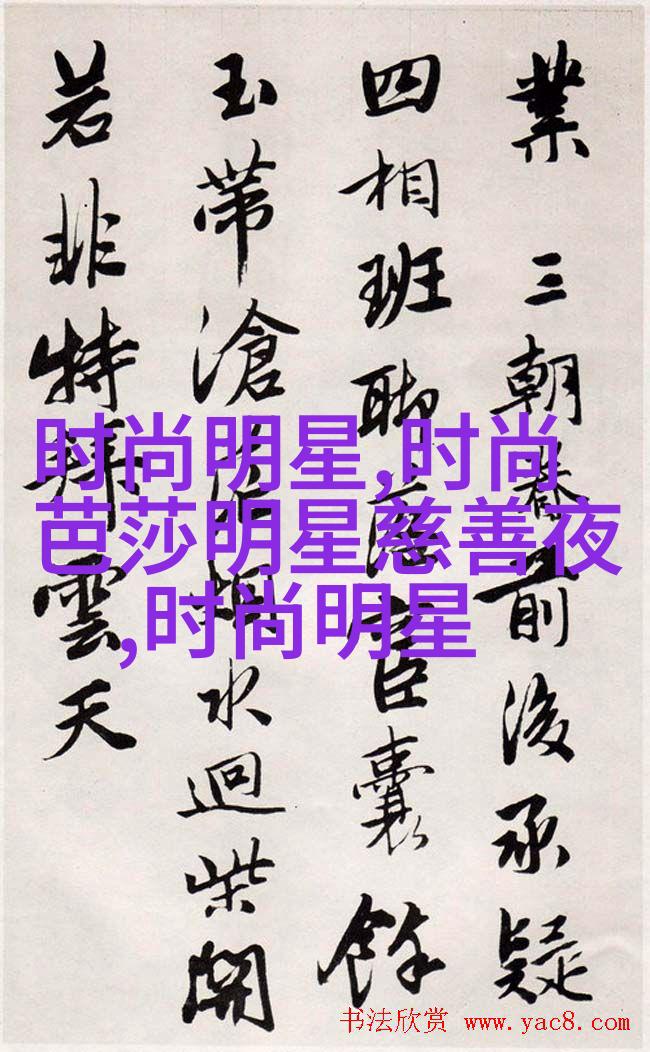 業 三朝眷前後承疑
四相班聯宦囊餘
玉帶滄水迴柴
若非特拜雲天
时尚明星,时尚
芭莎明星慈善夜
,时尚明星
书法欣赏 www.yac8.com